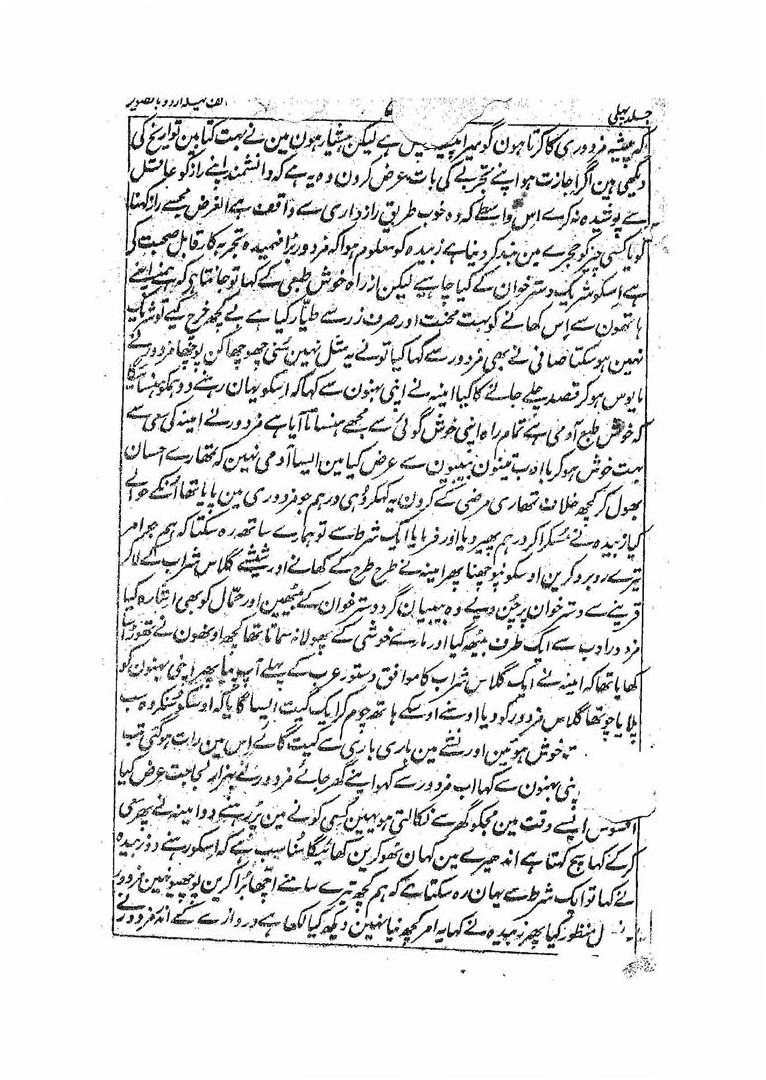 جلد پہلی
۷
الف لیلہ اردو با تصویر
کہ پیشہ مزدوری کا کرتا ہون گو میرا ہے لیکن ہشیار ہون مین نے بہت کتابین تواریخ کی
دیکھی ہین اگر اجازت ہو اپنے تجربے کی بات عرض کرون وہ یہ ہے کہ دانشمند اپنے راز کو عاقل
سے پوشیدہ نہ کرے اس واسطے کہ وہ خوب طریق رازداری سے واقف ہے الغرض مجھسے راز کہنا
گویا کسی چیز کو حجرے مین بند کر دینا ہے زبیدہ کو معلوم ہوا کہ مزدور بڑا فہمیدہ تجربہ کار قابل صحبت کی
ہے اسکو شریک دسترخوان کے کیا چاہیے لیکن از راہ خوش طبعی کے کہا تو جانتا ہی کہ ہمنے اپنے
ہاتھون سے اِس کھانے کو بہت محنت اور صرف زر سے طیّار کیا ہے بے کچھ خرچ کیے تو شریک
نہین ہو سکتا صافی نے بھی مزدور سے کہا کیا تو نے یہ مثل نہین سُنی چھوچھا کن پوچھا مزدور نے
مایوس ہو کر قصد چلے جانے کا کیا امینہ نے اپنی بہنون سے کہا کہ اسکو یہان رہنے دو ہمکو ہنسائیگا
کہ خوش طبع آدمی ہے تمام راہ اپنی خوش گوئی سے مجھے ہنساتا آیا ہے مزدور نے امینہ کی سی سے
بہت خوش ہو کر با ادب تینون بیبیون سے عرض کیا مین ایسا آدمی نہین کہ تمھارے احسان
بھول کر کچھ خلاف تمھاری مرضی کے کرون یہ کہکر وُہی درہم جو مزدوری مین پایا تھا اُنکے حوالے
کیا زبیدہ نے مُسکرا کر درہم پھیر دیا اور فرمایا ایک شرط سے تو ہمارے ساتھ رہ سکتا کہ ہم جو امر
تیرے روبرو کرین اوسکو نپوچھنا پھر امینہ نے طرح طرح کے کھانے اور شیشے گلاس شراب کے لا کر
قرینے سے دسترخوان پر چُن دیے وہ بیبیان گرد دسترخوان کے بیٹھین اور حمّال کو بھی اشارہ کیا
مزدور ادب سے ایک طرف بیٹھ گیا اور مارے خوشی کے پھولا نہ سماتا تھا کچھ اونھون نے تھوڑا سا
کھایا تھا کہ امینہ نے ایک گلاس شراب کا موافق دستور عرب کے پہلے آپ پیا پھر اپنی بہنون کو
پلایا چوتھا گلاس مزدور کو دیا اوسنے اوسکے ہاتھ چوم کر ایک گیت ایسا گایا کہ اوسکو سُنکر وہ سب
خوش ہوئین اور نشے مین باری باری سے گیت گائے اِس مین رات ہو گئی تب
پنی بہنون سے کہا اب مزدور سے کہو اپنے گھر جائے مزدور نے بہزار لجاجت عرض کیا
افسوس ایسے وقت مین مجکو گھر سے نکالتی ہو یہین کسی کونے مین پڑ رہنے دو امینہ نے پھر سعی
کر کے کہا سچ کہتا ہے اندھیرے مین کہان ٹھوکرین کھائیگا مُناسب ہے کہ اسکو رہنے دو زبیدہ
نے کہا تو ایک شرط سے یہان رہ سکتا ہے کہ ہم کچھ تیرے سامنے اچّھا بُرا کرین پوچھیو نہین مزدور
ل منظور کیا پھر زبیدہ نے کہا یہ امر کچھ نیا نہین دیکھ کیا لکھا ہے دروازے کے اندر مزدور نے